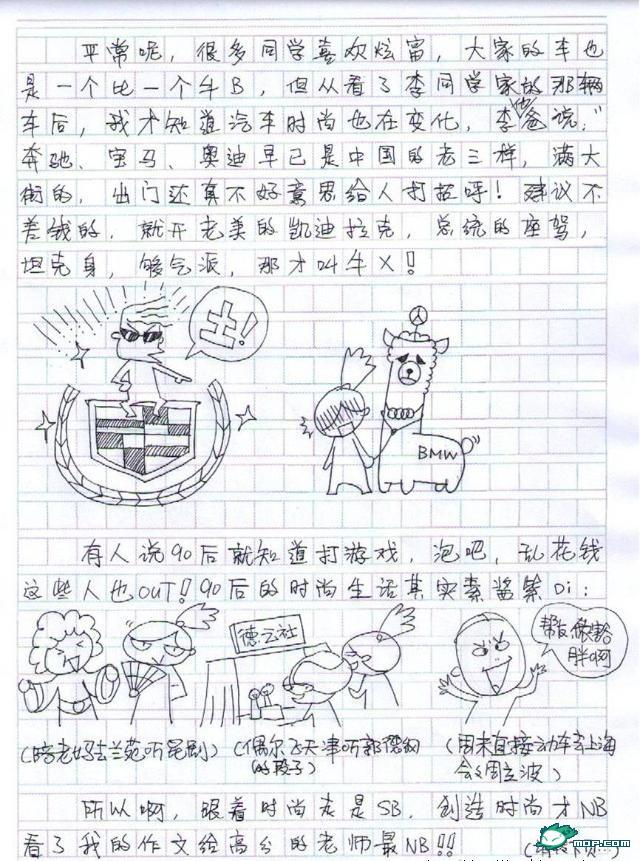 平常呢，很多同学喜欢炫富，大家的车也
是一个比一个牛B，但从看了李同学家的那辆
车后，我才知道汽车时尚也在变化，李他爸说："
奔驰、宝马、奥迪早已是中国的老三样，满大
街的，出门还真不好意思给人打招呼！建议不
差钱的，就开老美的凯迪拉克，总统的座驾，
坦克身，够气派，那才叫牛X！
土！
BMW
有人说90后就知道打游戏，泡吧，乱花钱
这些人也OUT！90后的时尚生活其实素酱紫Di：
德云社
胖啊
（陪老妈去兰苑听昆剧）
（偶尔飞天津听郭德纲
的段子）
（周末直接动车去上海
会会周立波）
所以啊，跟着时尚走是SB，创造时尚才NB
看了我的作文给高分的老师最NB！！
mop.com